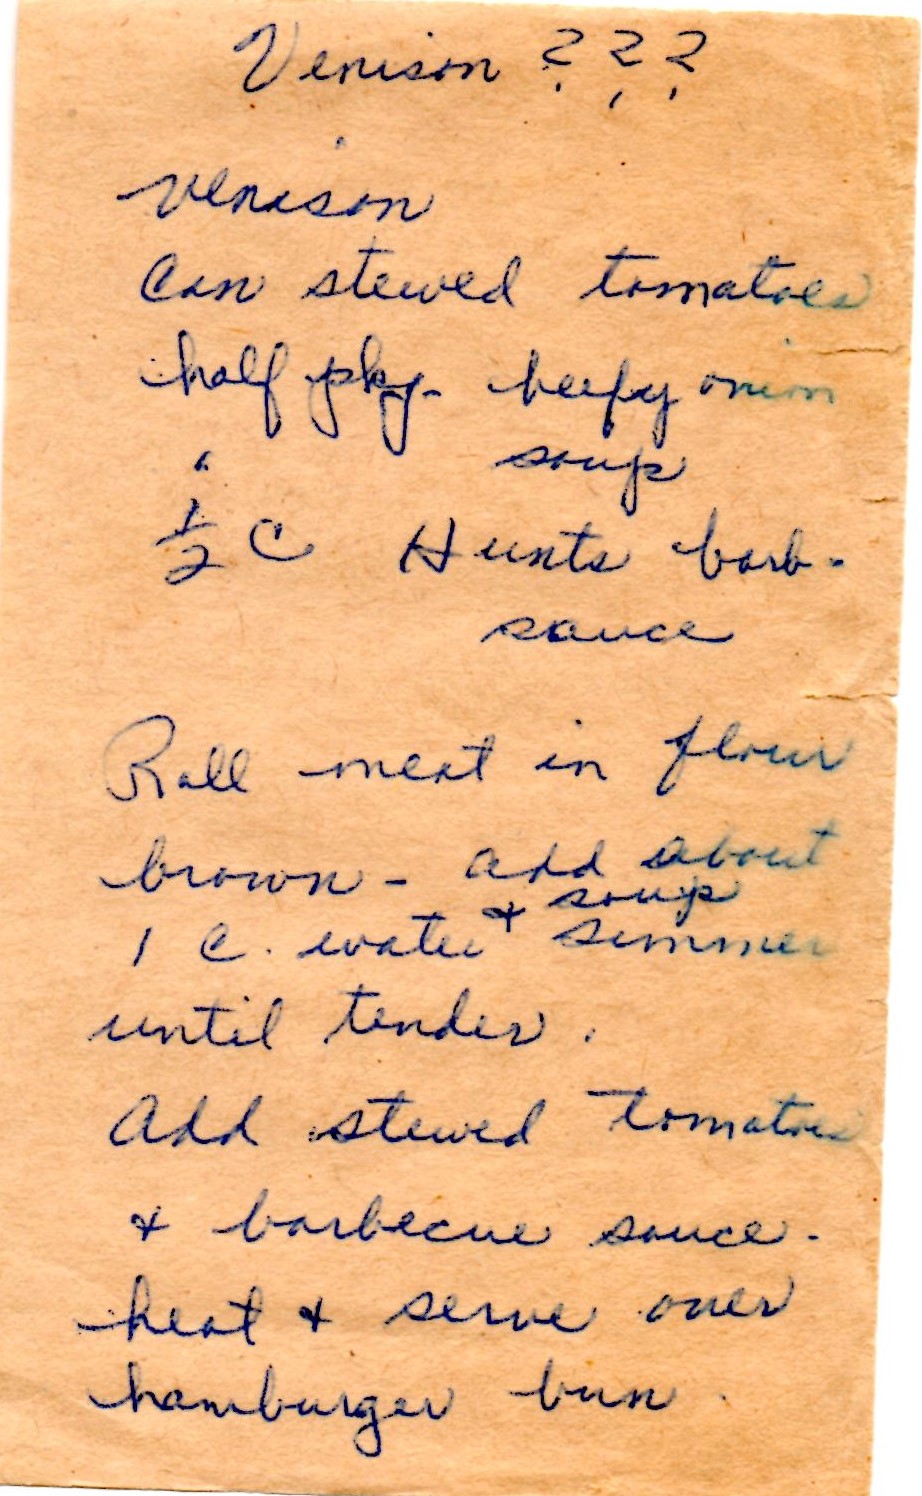 Venison ? ? ?
venison
Can stewed tomatoes
half pkg. beefy onion
" soup
1/2 C Hunts barb.
sauce
Roll meat in flour
brown - add about
soup
1 C. water + simmer
until tender.
Add stewed tomatoes
+ barbecue sauce.
heat + serve over
hamburger bun.